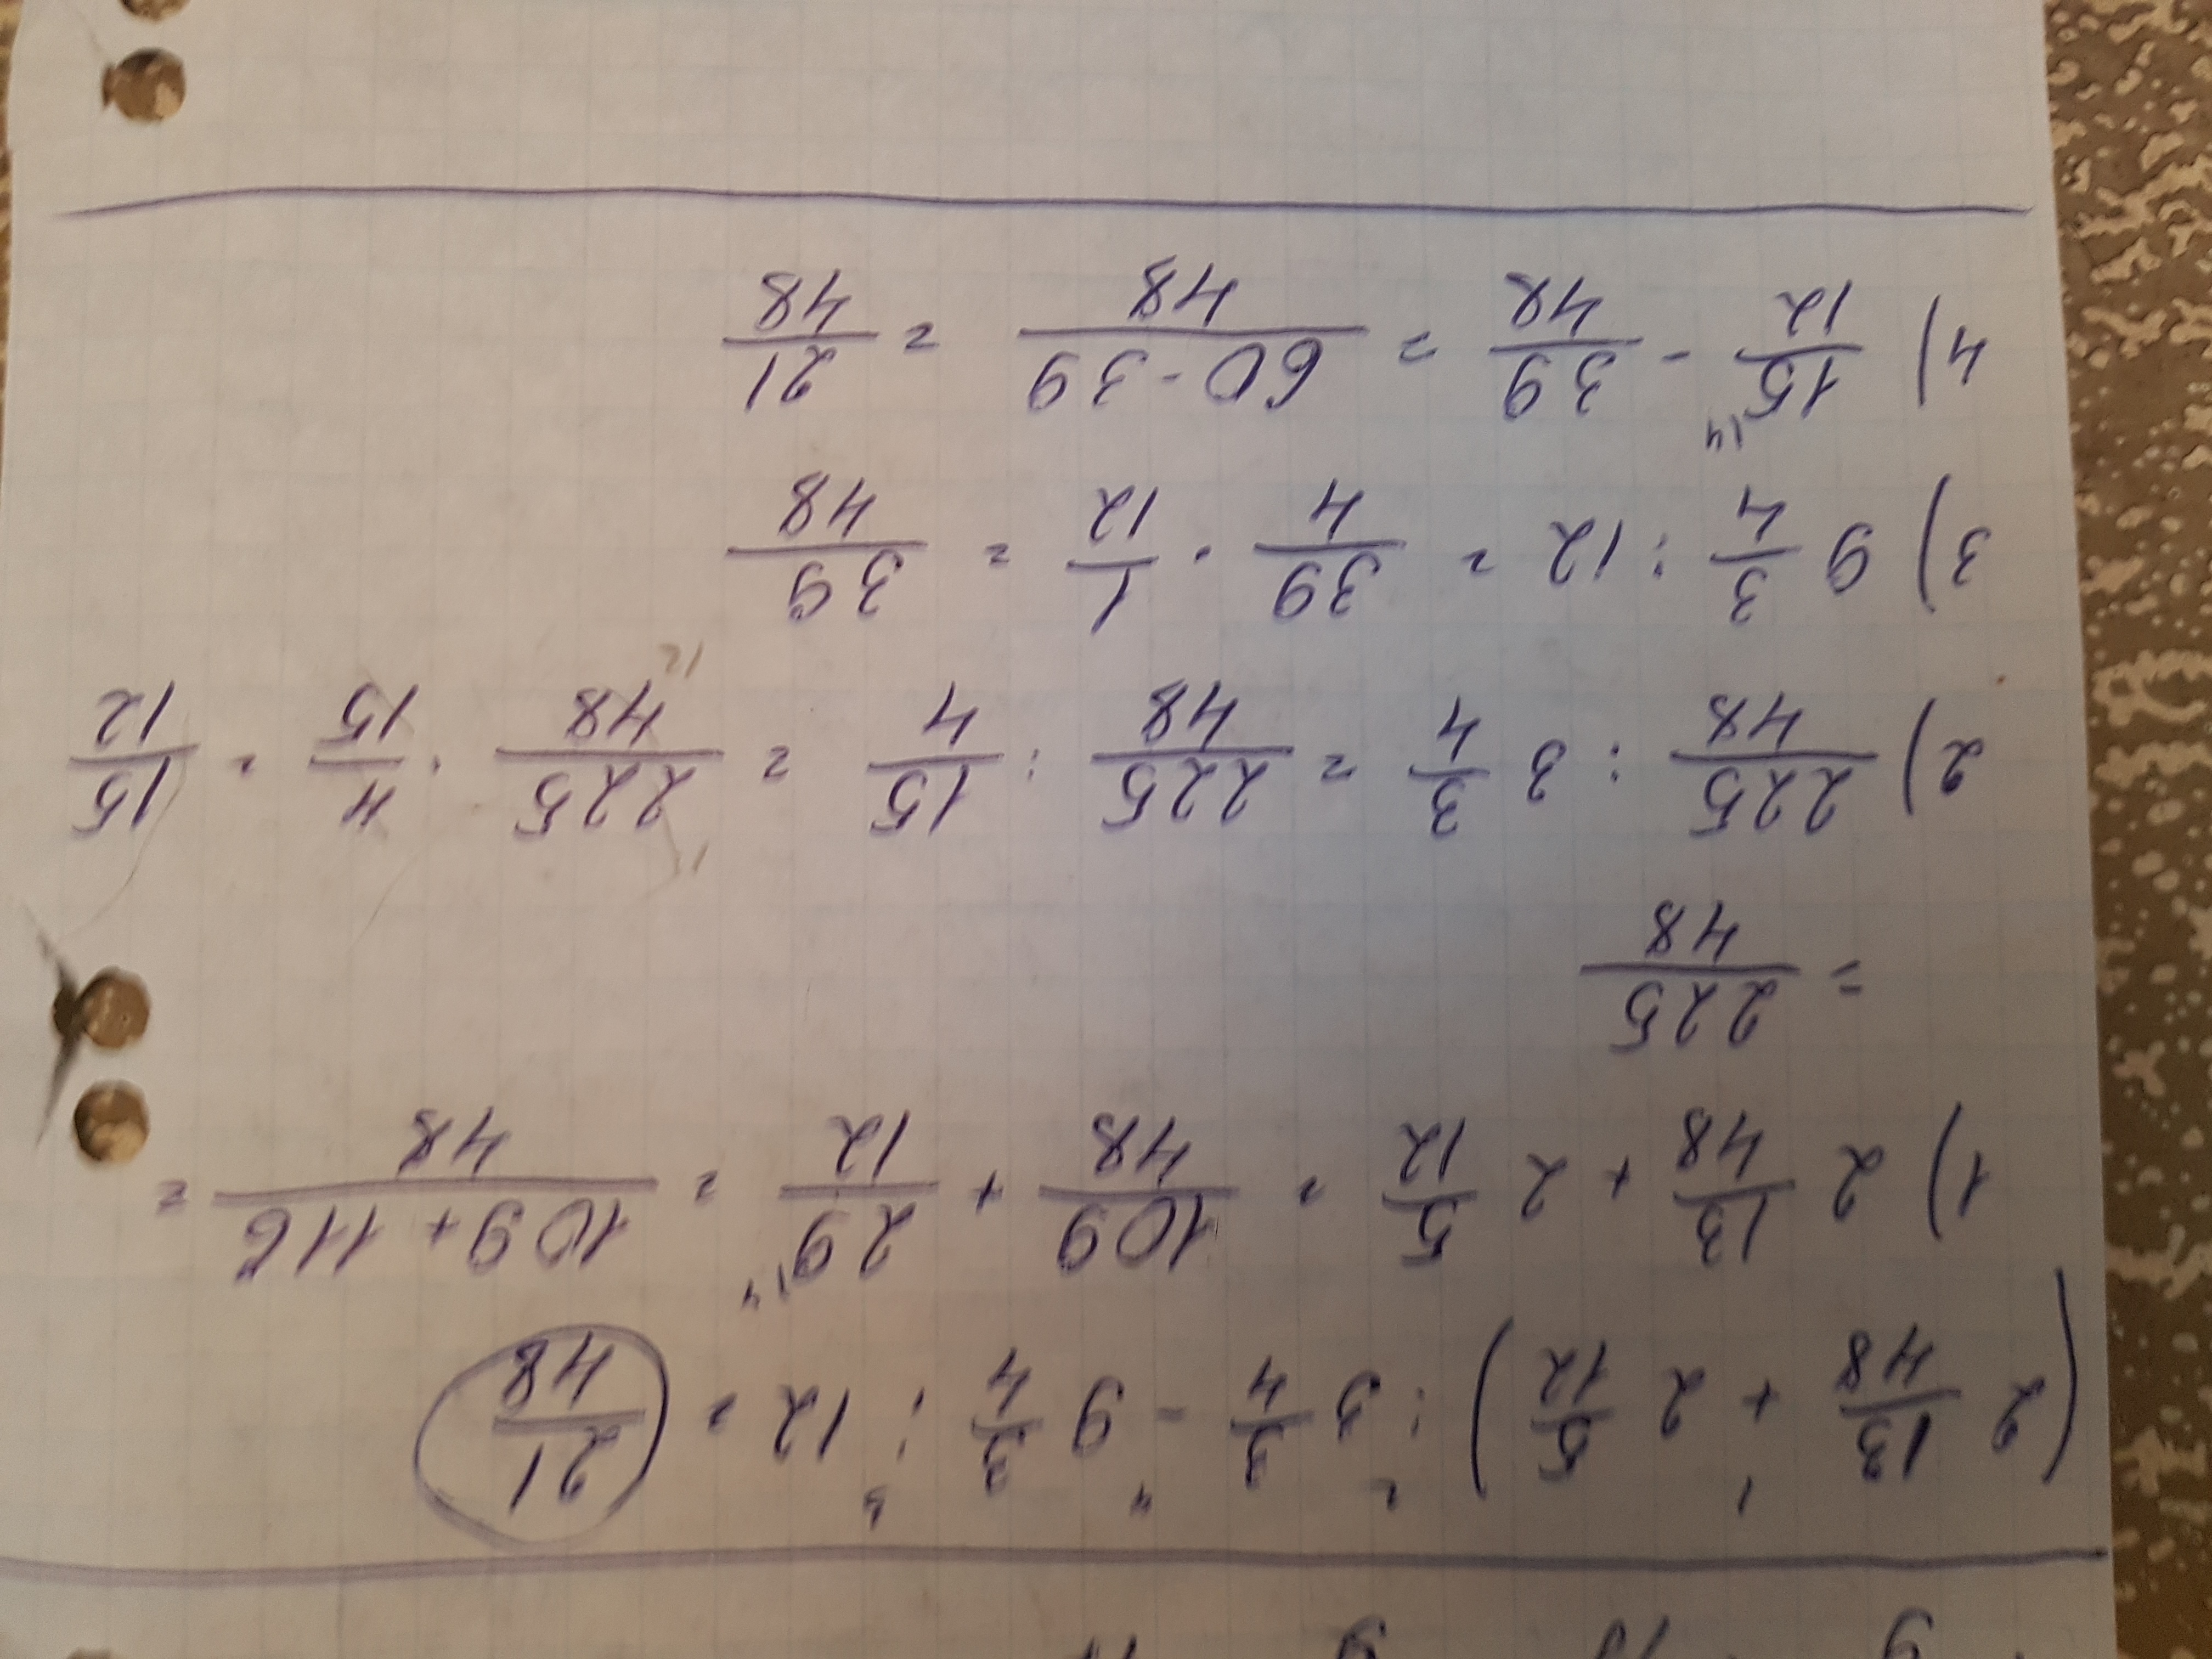 (2 13/48 + 2 5/12) : 3 3/4 - 9 3/4 : 12 = 21/48
1) 2 13/48 + 2 5/12 = 109/48 + 29/12 = 109+116/48 =
= 225/48
2) 225/48 : 3 3/4 = 225/48 : 15/4 = 225/48 · 4/15 = 15/12
3) 9 3/4 : 12 = 39/4 · 1/12 = 39/48
4) 15/12 - 39/48 = 60-39/48 = 21/48